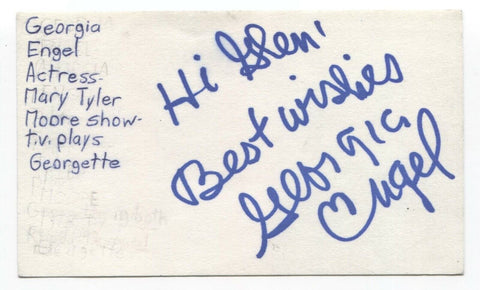 Georgia
Engel
Actress-
Mary Tyler
Moore show-
t.v. plays
Georgette
Hi Glen!
Best wishes
Georgia
Engel